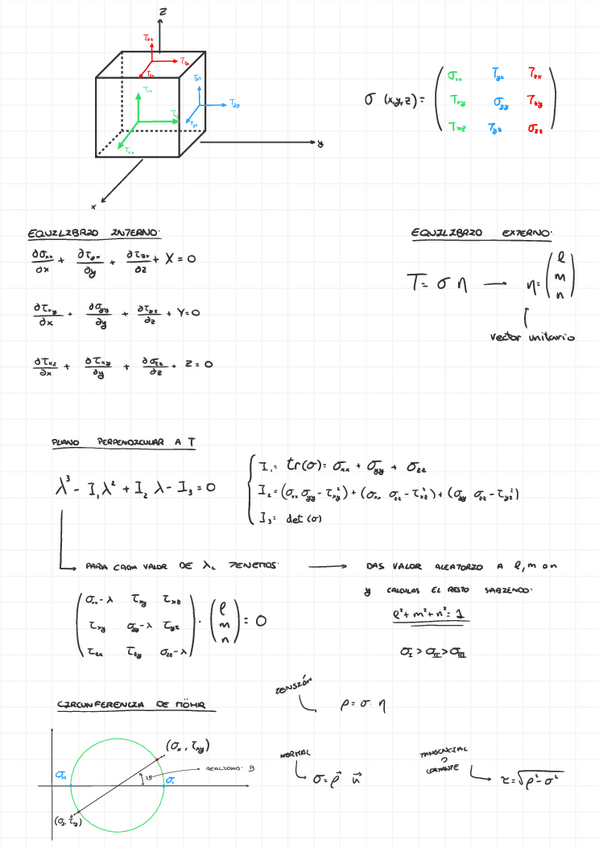 z
y
x
σ (x,y,z) = ( σxx τyx τzx
τxy σyy τzy
τxz τyz σzz )
EQUILIBRIO INTERNO:
∂σxx/∂x + ∂τyx/∂y + ∂τzx/∂z + X = 0
∂τxy/∂x + ∂σyy/∂y + ∂τzy/∂z + Y = 0
∂τxz/∂x + ∂τyz/∂y + ∂σzz/∂z + Z = 0
EQUILIBRIO EXTERNO:
T = σ η → η = ( l m n )
vector unitario
PLANO PERPENDICULAR A T
λ³ - I₁λ² + I₂ λ - I₃ = 0
I₁ = tr(σ) = σxx + σyy + σzz
I₂ = (σxx σyy - τxy²) + (σxx σzz - τxz²) + (σyy σzz - τyz²)
I₃ = det (σ)
PARA CADA VALOR DE λi TENEMOS: → DAS VALOR ALEATORIO A l, m o n
Y CALCULAS EL RESTO SABIENDO:
l² + m² + n² = 1
σI > σII > σIII
( σxx - λ τxy τxz
τxy σyy - λ τyz
τzx τzy σzz - λ ) · ( l m n ) = 0
CIRCUNFERENCIA DE MÖHR
(σx, τxy)
σII
σI
REALIDAD: θ
TENSIÓN
ρ = σ η
NORMAL
σ = ρ⃗ n⃗
TANGENCIAL
O
CORTANTE
τ = √ρ² - σ²